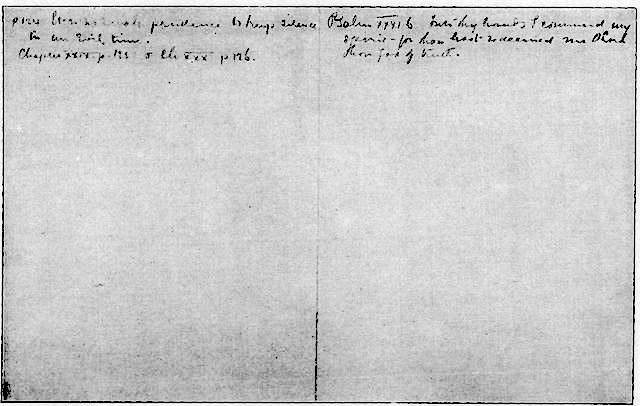 prudence to keep silence
in an Evil time.
Chapter XXIX p. 123 & Ch XXX p 126.
Psalm XXXI 6 Into thy hands I commend my
spirit - for thou hast redeemed me O Lord
thou God of truth.